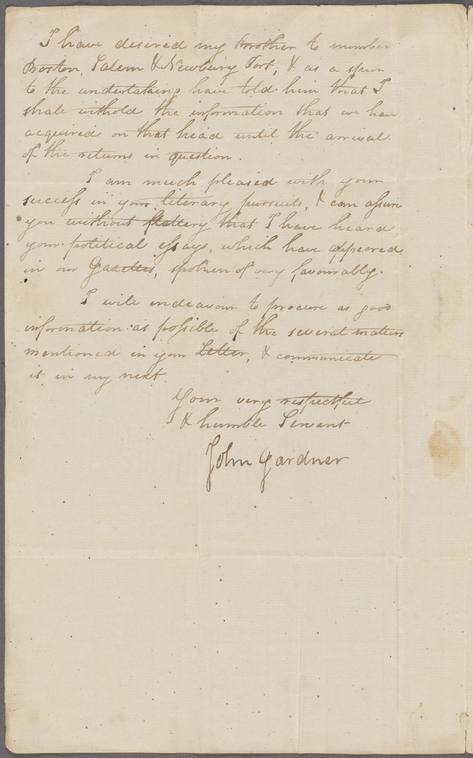 I have desired my Brother to number
Boston, Salem & Newbury Port, & as a spur
to the undertaking have told him that I
shall withold the information that we have
acquired on that head until the arrival
of the returns in question.
I am much pleased with your
success in your literary pursuits, & can assure
you without flattery that I have heard
your political essays, which have appeared
in our Gazettes, spoken of very favourably.
I will endeavour to procure as good
information as possible of the several matters
mentioned in your Letter, & communicate
it in my next
Your very respectful
& humble Servant
John Gardner